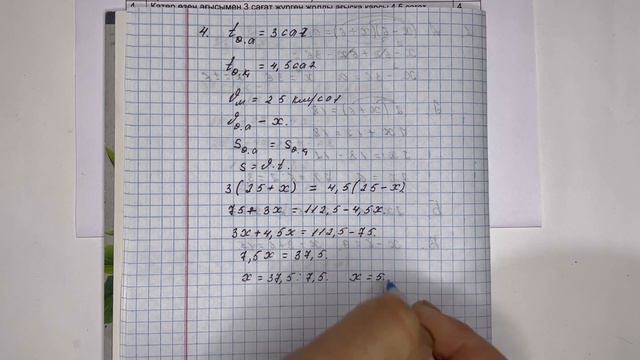 4 Катер өзен ағысымен 3 сағат жүрген жолды ағысқа қарсы 4,5 сағат 4
4. t ө.а = 3 сағ
t ө.қ = 4,5 сағ
𝜗м = 25 км/сағ
𝜗ө.а – x.
S ө.а = S ө.қ
S = 𝜗·t.
3(25+x) = 4,5(25–x)
75+3x = 112,5–4,5x
3x+4,5x = 112,5–75.
7,5x = 37,5.
x = 37,5:7,5. x = 5.